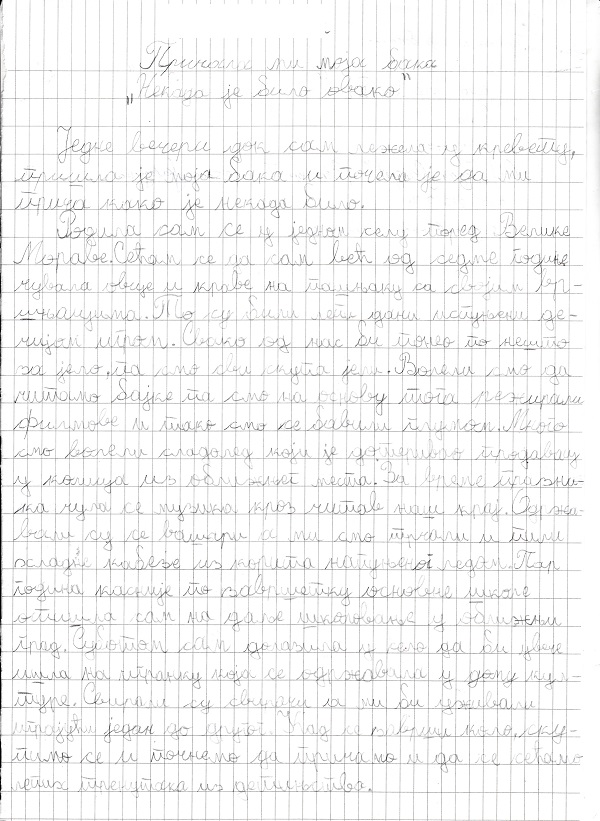 Причала ми моја бака
„Некада је било овако"
Једне вечери док сам лежала у кревету,
пришла је моја бака и почела је да ми
прича како је некада било.
Родила сам се у једном селу поред Велике
Мораве. Сећам се да сам већ од седме године
чувала овце и краве на пашњаку са својим вр-
шњацима. То су били лепи дани испуњени де-
чијом игром. Свако од нас би понео по нешто
за јело, па смо сви скупа јели. Волели смо да
читамо бајке па смо на основу тога режирали
филмове и тако смо се бавили глумом. Много
смо волели сладолед који је дотеривао продавац
у колица из оближњег места. За време празни-
ка чула се музика кроз читаве наш крај. Одржа-
вали су се вашари а ми смо трчали и пили
хладне кабезе из корита напуњеног ледом. Пар
година касније по завршетку основне школе
отишла сам на даље школовање у оближњи
град. Суботом сам долазила у село да би увече
ишла на игранку која се одржавала у дому кул-
туре. Свирали су свирачи а ми би уживали
играјући један до другог. Кад се заврши коло, ску-
пимо се и почнемо да причамо и да се сећамо
лепих тренутака из детињства.